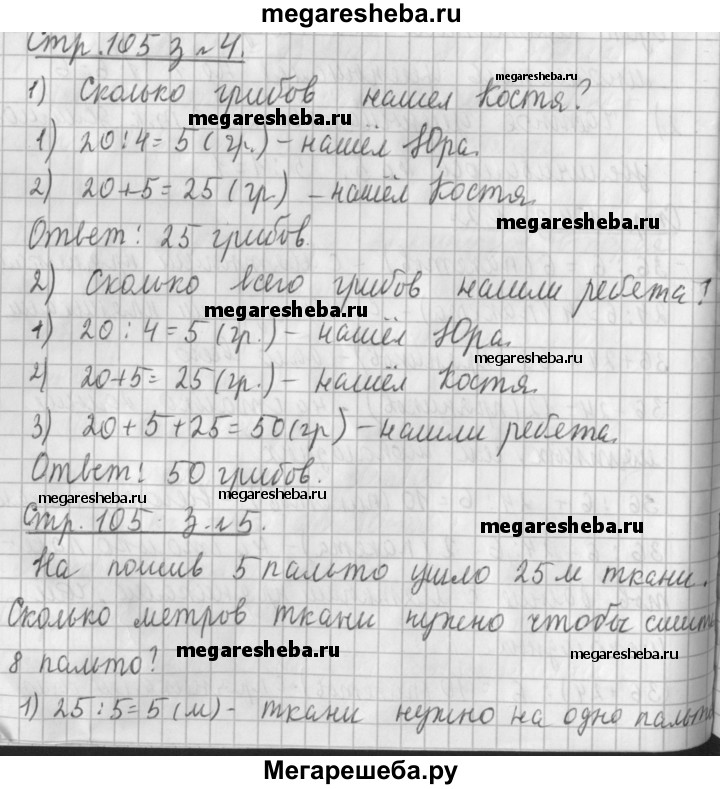 megaresheba.ru
Стр. 105 з №4.
megaresheba.ru
1) Сколько грибов нашел Костя?
megaresheba.ru
1) 20:4=5 (гр.) - нашёл Юра.
2) 20+5=25 (гр) - нашёл Костя.
megaresheba.ru
Ответ: 25 грибов.
2) Сколько всего грибов нашли ребета?
megaresheba.ru
1) 20:4=5 (гр.) - нашёл Юра.
megaresheba.ru
2) 20+5=25 (гр.) - нашёл Костя.
3) 20+5+25=50 (гр) - нашли ребета.
Ответ: 50 грибов.
megaresheba.ru megaresheba.ru
Стр. 105 з. №5.
megaresheba.ru
На пошив 5 пальто ушло 25 м ткани.
Сколько метров ткани нужно чтобы сшить
8 пальто?
megaresheba.ru megaresheba.ru
1) 25:5=5 (м) - ткани нужно на одно пальто
Мегарешеба.ру